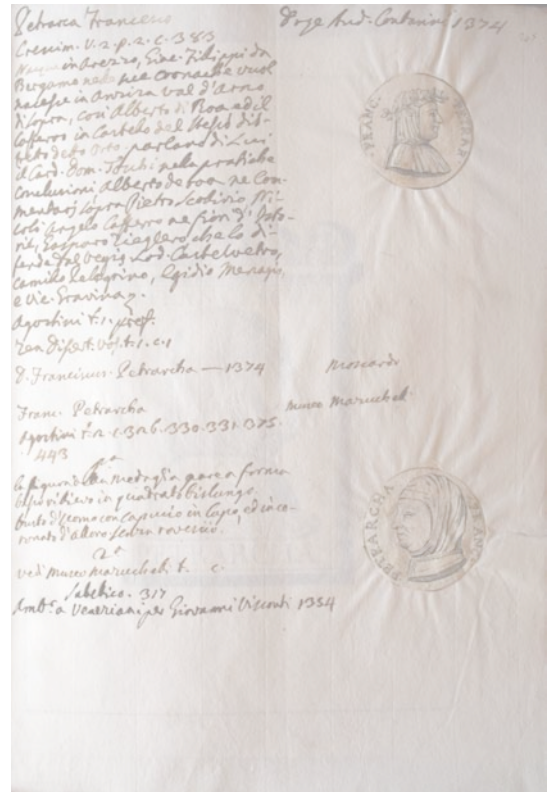 Petrarca Francesco
Doge And. Contarini 1374
Crescim. v. 2. p. 2. c. 383
Nacque in Arezzo, Giac. Filippo da
Bergamo nelle sue cronache vuol
nascesse in Anziza val d'Arno
di sopra, con Alberto di Roa ed il
Cafferro in Castello del stesso dis-
tetto Orto. parlano di Lui
il Card. Dom. Tuschi nella pratiche
Conclusioni Alberto de roa ne Com-
mentarj sopra Pietro, Ni-
colò Angelo Cafferro ne fiori d'Isto-
rie, Gasparo Zieglero, che lo di-
fende dal Lod. Castelvetro,
Camillo Pelegrino, Egidio Menagio,
e Vic. Gravina.
Agostini t. 1. pref.
Zen Disert. vos. t. 1. c. 1
D. Franciscus Petrarcha — 1374
Moscardi
Franc. Petrarcha
Museo Mazuchel.
Agostini t. 2. c. 326. 330. 331. 375.
443
1ª
la figura della medaglia pare a forma
in quadrato bislungo,
busto d'uomo con capucio in capo, ed inco-
ronato d'alloro senza roverscio
2ª
vedi Museo Mazuchelli t. c.
Sabelico. 317
Amb.r a Veneziani per Giovanni Visconti 1354
FRANC. PETRAR
PETRARCHA FRANC.